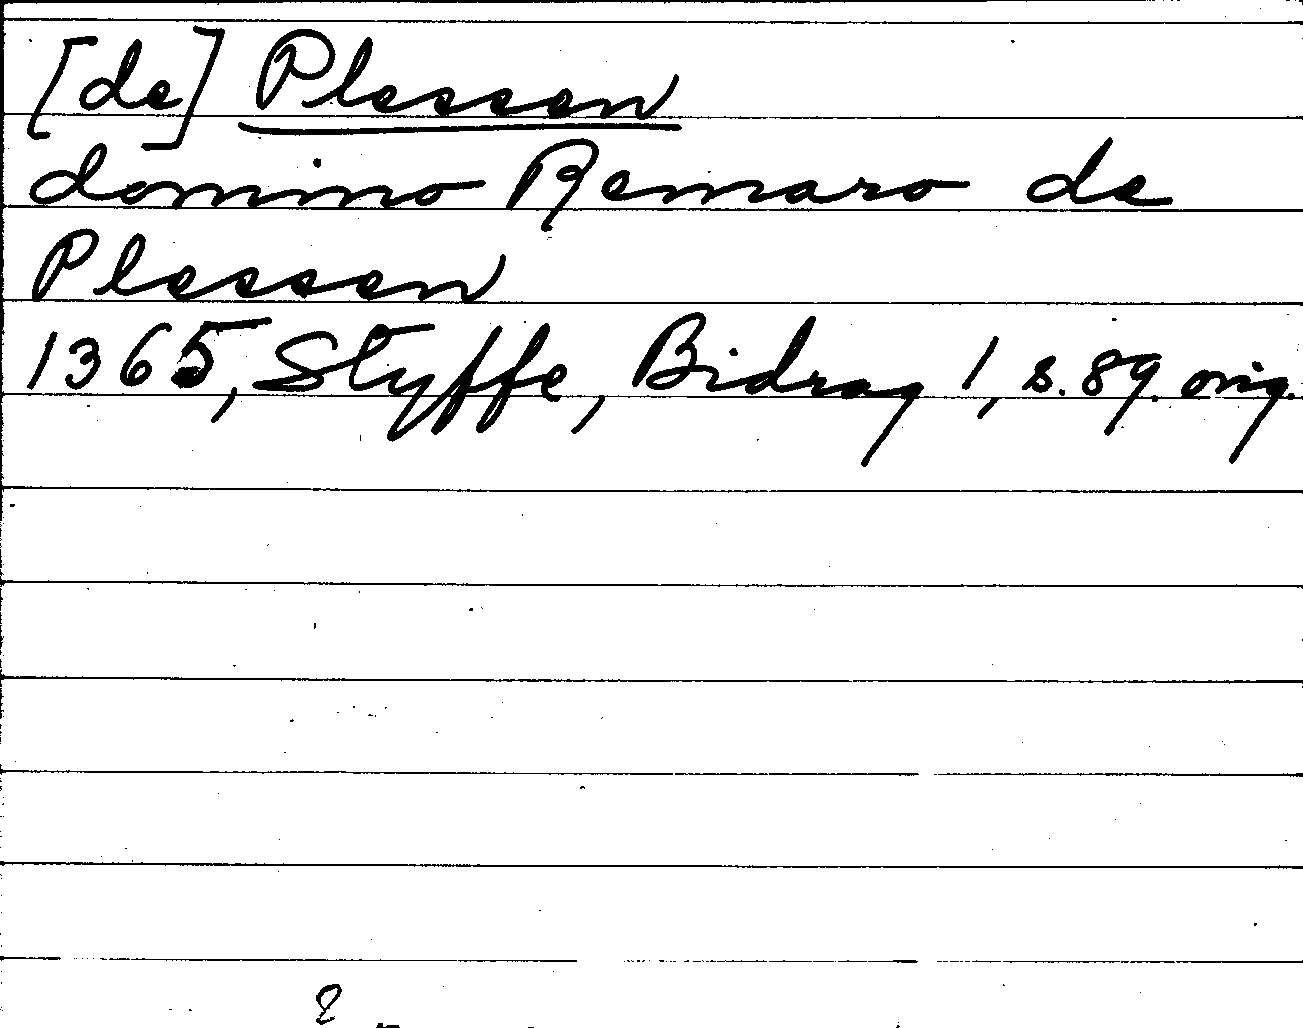 [de] Plessen
domino Remaro de
Plessen
1365, Styffe, Bidrag 1, s. 89. orig.